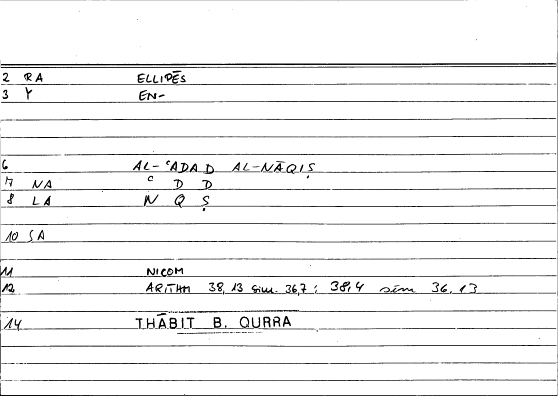 2 RA ELLIPĒS
3 Y EN-
6 AL-ʿADAD AL-NĀQIṢ
7 NA ʿ D D
8 LA N Q Ṣ
10 SA
11 NICOM
12 ARITHM 38,13 sim. 36,7; 38,4 sim 36.13
14 THĀBIT B. QURRA